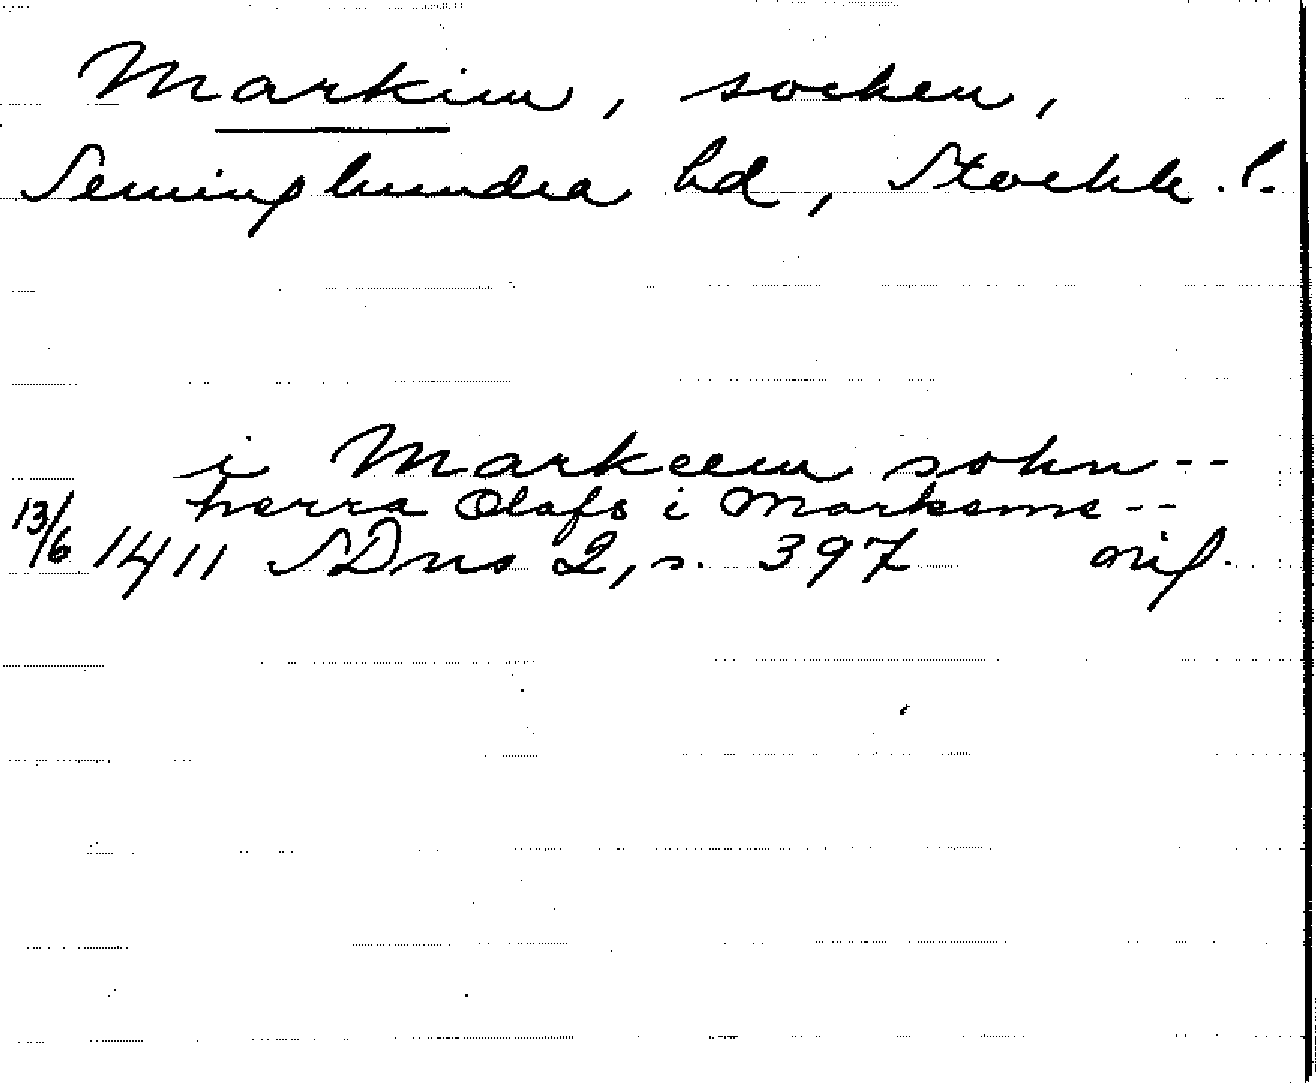 Markim, socken,
Seminghundra hd, Stockh. l.
i Markeem sokn --
herra Olafs i Markeme --
13/6 1411 SDns 2, s. 397 orig.